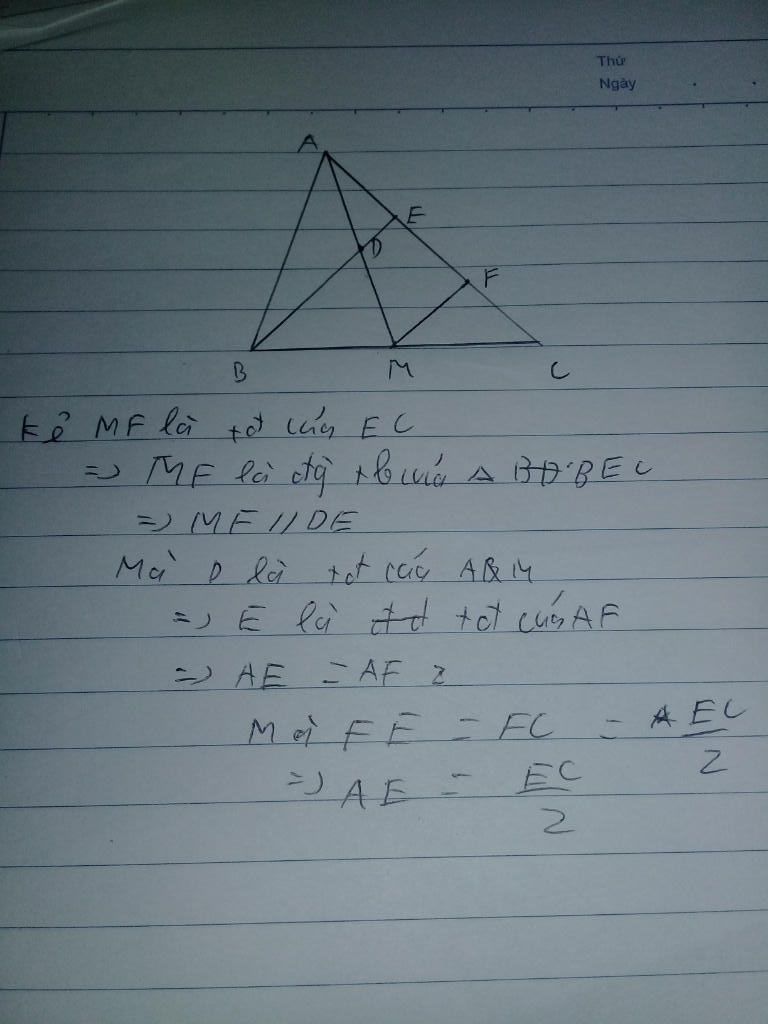 Thứ
Ngày
A
E
D
F
B
M
C
Kẻ MF là tđ của EC
=> MF là đg tb của △ BEC
=> MF // DE
Mà D là tđ của AM
=> E là tđ của AF
=> AE = AF 2
Mà FE = FC = EC/2
=> AE = EC/2